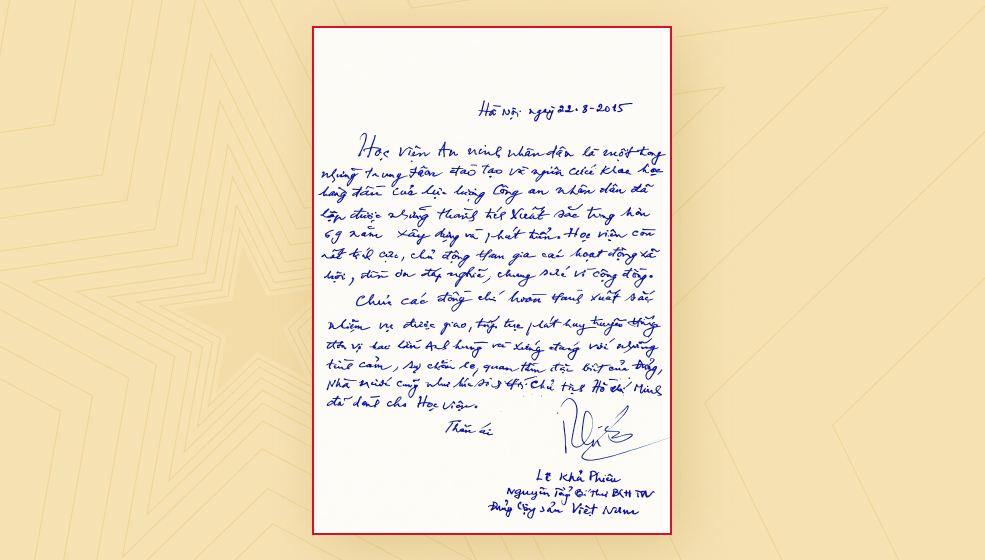 Hà Nội ngày 22-8-2015
Học viện An ninh nhân dân là một trong
những trung tâm đào tạo và nghiên cứu khoa học
hàng đầu của lực lượng Công an nhân dân đã
lập được những thành tích xuất sắc trong hơn
69 năm xây dựng và phát triển. Học viện còn
rất tích cực, chủ động tham gia các hoạt động xã
hội, đền ơn đáp nghĩa, chung sức vì cộng đồng.
Chúc các đồng chí hoàn thành xuất sắc
nhiệm vụ được giao, tiếp tục phát huy truyền thống
đơn vị hai lần Anh hùng và xứng đáng với những
tình cảm, sự chăm lo, quan tâm đặc biệt của Đảng,
Nhà nước cũng như lúc sinh thời Chủ tịch Hồ Chí Minh
đã dành cho Học viện.
Thân ái
Lê Khả Phiêu
Nguyên Tổng Bí thư BCH TW
Đảng Cộng sản Việt Nam